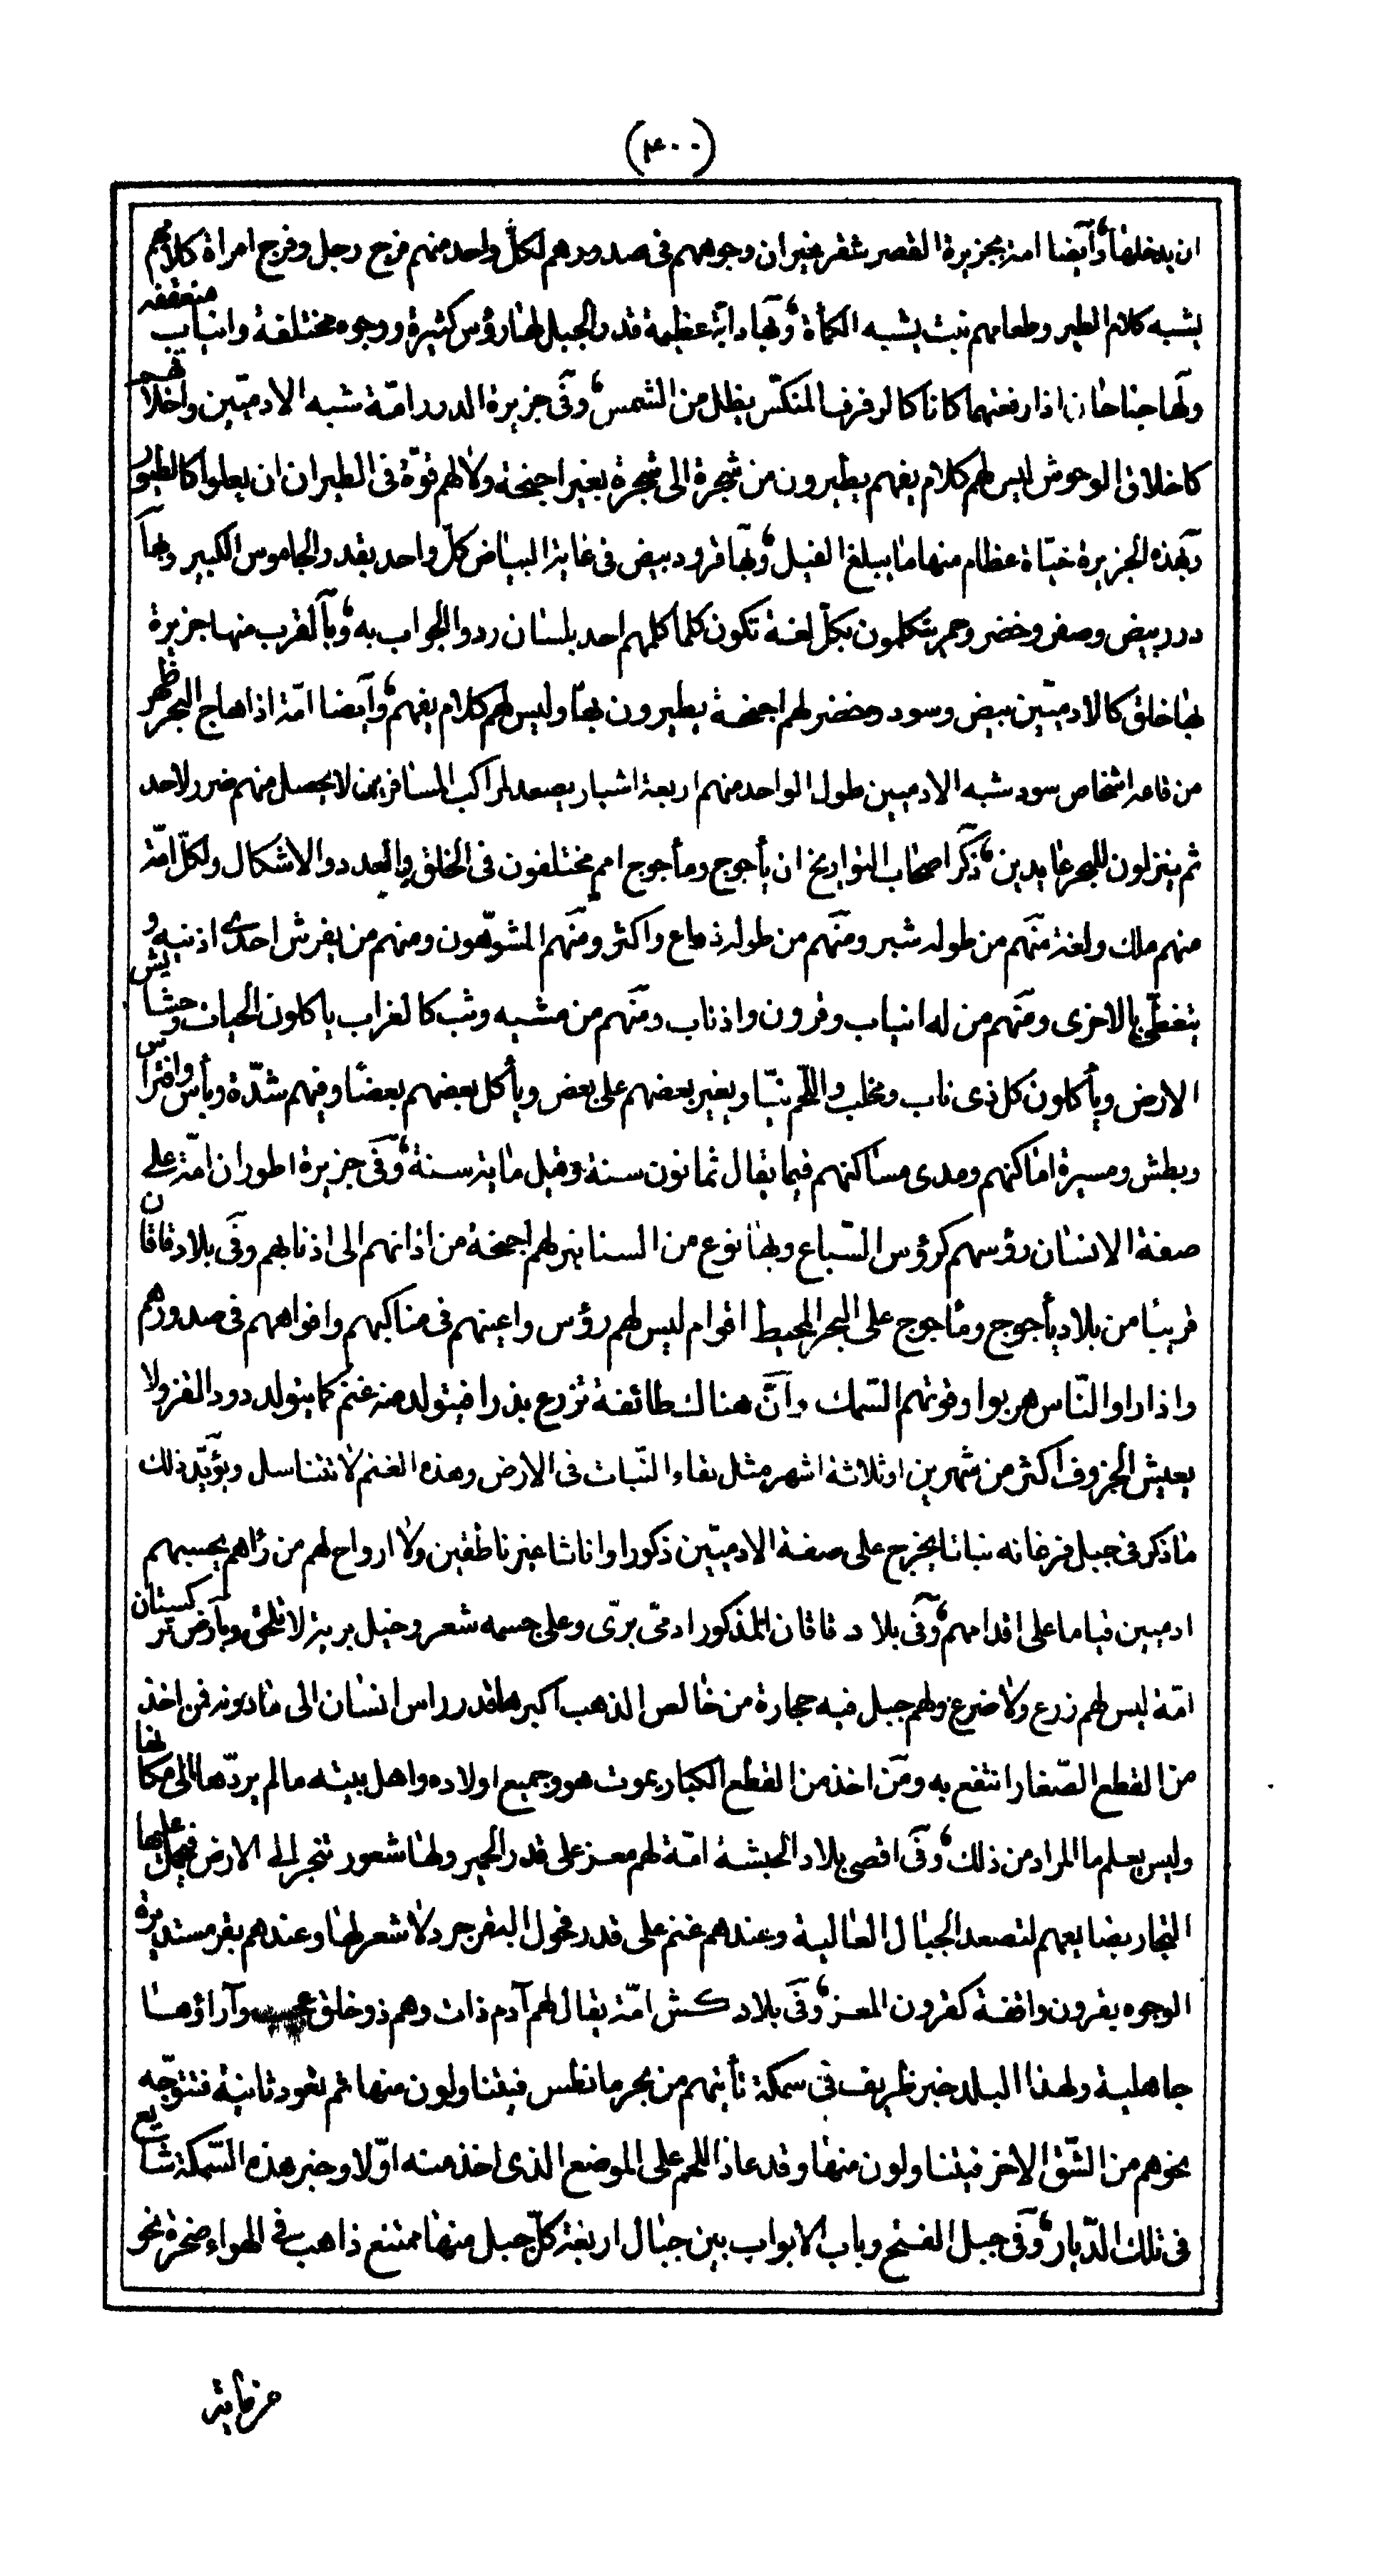 (٤٠٠)
ان يدخلها وأيضا امة بجزيرة القصر شقر غير ان وجوههم فى صدورهم لكلّ واحد منهم فرج رجل وفرج امراة كلامهم
يشبه كلام الطير وطعامهم نبت يشبه الكمأة وبها دابّة عظيمة قدر الجبل لها رؤس كثيرة ووجوه مختلفة وانياب منعقفه
ولها جناحان اذا رفعتهما كانا كالرفرف المنكّس يظل من الشمس وفى جزيرة الدرر امّة شبه الادميّين واخلاقهم
كاخلاق الوحوش ليس لهم كلام يفهم يطيرون من شجرة الى شجرة بغير اجنحة ولا لهم قوّة فى الطيران ان يعلوا كالطيور
وبهذه الجزيرة حيّاة عظام منها ما يبلغ الفيل وبها قرود بيض فى غاية البياض كلّ واحد بقدر الجاموس الكبير وبها
درر بيض وصفر وخضر وحمر يتكلمون بكلّ لغة تكون كلما كلمهم احد بلسان ردوا الجواب به وبالقرب منها جزيرة
بها خلق كالادميّين بيض وسود وخضر لهم اجنحة يطيرون بها وليس لهم كلام يفهم وأيضا امّة اذا هاج البحر ظهر
من قاعه اشخاص سود شبه الادميين طول الواحد منهم اربعة اشبار يصعد لمراكب المسافرين لا يحصل منهم ضرر لاحد
ثم ينزلون للبحر عايدين ذكر اصحاب التواريخ ان يأجوج ومأجوج امم مختلفون فى الخلق والعدد والاشكال ولكلّ امّة
منهم ملك ولغة منهم من طوله شبر ومنهم من طوله ذراع واكثر ومنهم المشوّهون ومنهم من يفرش احدى اذنيه و
يتغطّى بالاخرى ومنهم من له انياب وقرون واذناب ومنهم من مشيه وثب كالغراب ياكلون الحيات وحشايش
الارض ويأكلون كل ذى ناب ومخلب واللحم نيّا ويغير بعضهم على بعض ويأكل بعضهم بعضا وفيهم شدّة وبأس وافتراس
وبطش ومسيرة اماكنهم ومدى مساكنهم فيما يقال ثمانون سنة وقيل ماية سنة وفى جزيرة اطوران امّة على
صفة الانسان رؤسهم كرؤس السّباع وبها نوع من السنانير لهم اجنحة من اذانهم الى اذنابهم وفى بلاد قاقان
قريبا من بلاد يأجوج ومأجوج على البحر المحيط اقوام ليس لهم رؤس واعينهم فى مناكبهم وافواههم فى صدورهم
واذا راوا النّاس هربوا وقوتهم السّمك وانّ هنالك طائفة تزرع بذرا فيتولد منه غنم كما يتولد دود القز ولا
يعيش الخروف اكثر من شهرين او ثلاثة اشهر مثل بقاء النّبات فى الارض وهذه الغنم لا تتناسل ويؤيّد ذلك
ما ذكر فى جبل فرغانه نباتا يخرج على صفة الادميّين ذكورا واناثا غير ناطقين ولا ارواح لهم من رٰاهم يحسبهم
ادميين قياما على اقدامهم وفى بلاد قاقان المذكور ادمىّ برّى وعلى جسمه شعر وخيل برية لا تلحق وبأرض تركستان
امّة ليس لهم زرع ولا ضرع ولهم جبل فيه حجارة من خالص الذهب اكبرها قدر راس انسان الى ما دونه فمن اخذ
من القطع الصّغار انتفع به ومن اخذ من القطع الكبار يموت هو وجميع اولاده واهل بيته ما لم يردّها الى مكانها
وليس يعلم ما المراد من ذلك وفى اقصى بلاد الحبشة امّة لهم معز على قدر الحمير ولها شعور تنجر الى الارض فيحمل عليها
التجار بضايعهم لتصعد الجبال العالية وعندهم غنم على قدر فحول البقر جرد لا شعر لها وعندهم بقر مستديرة
الوجوه بقرون واقفة كقرون المعز وفى بلاد كش امّة يقال لهم آدم ذات وهم ذو خلق عجيب وآراؤها
جاهلية ولهذا البلد خبر ظريف فى سمكة تأتيهم من بحر مانطس فيتناولون منها ثم تعود ثانية فتتوجّه
نحوهم من الشّق الاخر فيتناولون منها وقد عاد اللحم على الموضع الذى اخذ منه اوّلا وخبر هذه السّمكة شايع
فى تلك الدّيار وفى جبل الفتح وباب الابواب بين جبال اربعة كلّ جبل منها ممتنع ذاهب فى الهواء صخرة نحو
من ماية